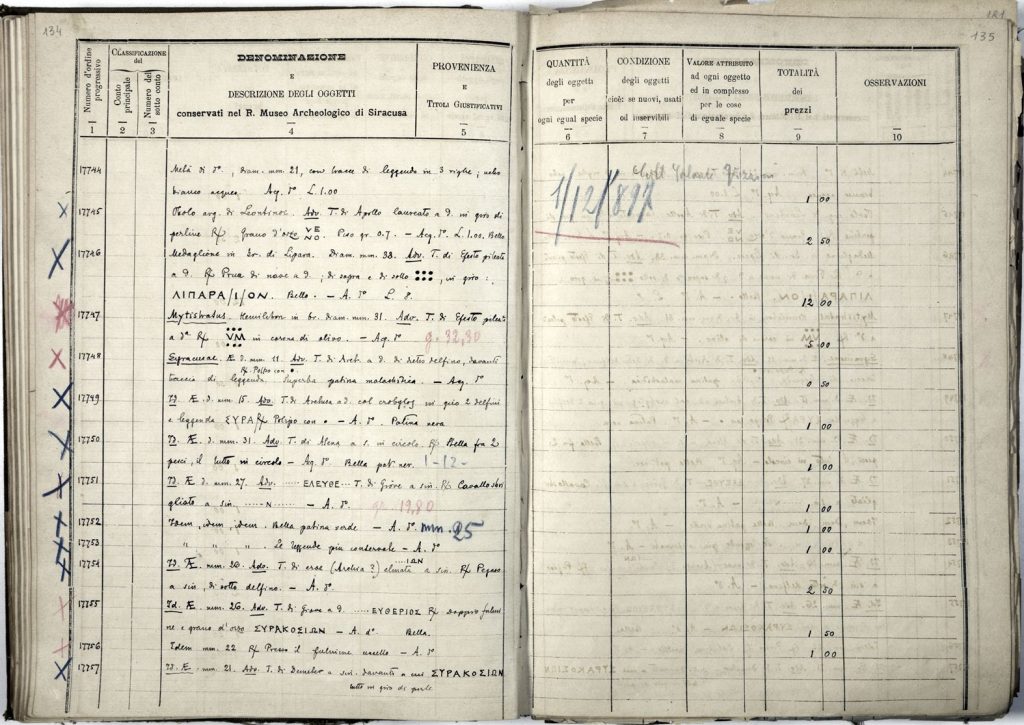 134
Numero d'ordine progressivo
CLASSIFICAZIONE del
Conto principale
Numero del sotto conto
DENOMINAZIONE
E
DESCRIZIONE DEGLI OGGETTI
conservati nel R. Museo Archeologico di Siracusa
PROVENIENZA
E
TITOLI GIUSTIFICATIVI
1 2 3 4 5
17744 Metà di d°, diam. mm. 21, con tracce di leggenda in 3 righe; nello
bianco acquea. Acq. d° L. 1.00
17745 Obolo arg. di Leontinoi. Adv. T. di Apollo laureato a d. in giro di
perline Rx Grano d'orzo VE NO. Peso gr. 0.7. - Acq. d°. L. 1.00. Bello
17746 Medaglione in br. di Lipara. Diam. mm. 33. Adv. T. di Efesto pileato
a d. Rx Prua di nave a d.; di sopra e di sotto , in giro:
ΛΙΠΑΡΑ/Ι/ΟΝ. Bello. - A. d° L. 8.
17747 Mytistratus. Hemilitron in br. diam. mm. 31. Adv. T. di Efesto pileato
a d° Rx VM in corona di olivo. - Acq. d° g. 32,30
17748 Syracusae. Æ d. mm. 11. Adv. T. di Areth. a d. di dietro delfino, davanti
Rx Polpo con •
traccia di leggenda. Superba patina malachitica. - Acq. d°
17749 Id. Æ. d. mm. 15. Adv. T. di Arethusa a d. col in giro 2 delfini
e leggenda ΣΥΡΑ Rx Polipo con • - A. d°. Patina nera
17750 Id. Æ. d. mm. 31. Adv. T. di Atena a s. in circolo. Rx Bella fra 2
pesci, il tutto in circolo - Aq. d° Bella pat. ner. 1-12-
17751 Id. Æ d. mm. 27. Adv. ..... ΕΛΕΥΘΕ... T. di Giove a sin. Rx Cavallo sbri
gliato a sin. .....N..... - A. d° gr. 19,80
17752 Idem, idem, idem. Bella patina verde - A. d°. mm. 25
17753 " " " . Le leggende più conservate - A. d°
17754 Id. Æ. mm. 26. Adv. T. di eroe (Archia?) elmata a sin. ...ΙΩΝ Rx Pegaso
a sin., di sotto delfino. - A. d°.
17755 Id. Æ. mm. 26. Adv. T. di Giove a d. .... ΕΥΘΕΡΙΟΣ Rx Doppio fulmi
ne e grano d'orzo ΣΥΡΑΚΟΣΙΩΝ - A. d°. Bella.
17756 Idem mm. 22 Rx Presso il fulmine uccello - A. d°
17757 Id. Æ. mm. 21. Adv. T. di Demeter a sin. davanti a cui ΣΥΡΑΚΟΣΙΩΝ
tutto in giro di perle
121
135
QUANTITÀ
degli oggetti
per
ogni egual specie
CONDIZIONE
degli oggetti
cioè: se nuovi, usati
od inservibili
VALORE ATTRIBUITO
ad ogni oggetto
ed in complesso
per le cose
di eguale specie
TOTALITÀ
dei
prezzi
OSSERVAZIONI
6 7 8 9 10
1/12/897
1 00
2 50
12 00
5 00
0 50
1 00
1 00
1 00
1 00
1 00
2 50
1 50
1 00